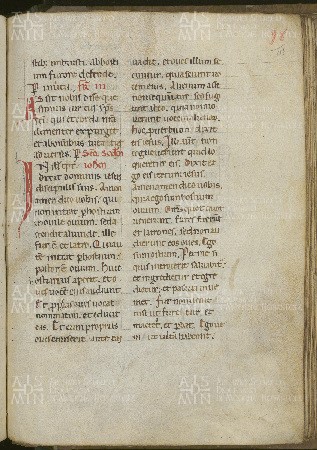 Assit nobis dn̄e que
sumus uirtus sp̄s
sc̄i: que et corda nr̄a
clementer expurget
et ab omnibus tueat~
aduersis.
Dixit dominus iesus
discipulis suis. Amen
amen dico uobis. qui
non intrat p hostium
in ouile ouium. sed a
scendit aliunde. ille
fur ē et latro. Qui au
tē intrat p hostium
pastor ē ouium. Huic
ostiarius aperit. et o
ues uocē ei audiunt
Et pprias oues uocat
nominatim. et educit
eas. Et cum proprias
oues emiserit. ante eas
uadit. et oues illum se
cuntur. quia sciunt uo
cem eius. Alienum aūt
non sequunt~. sed fugi
unt ab eo. quia non no
uerunt uocē alienorū.
hoc puerbium dixit
eis iesus. Illi autē non
cognouerunt quid lo
queretur eis. Dixit er
go eis iterum iesus.
amen amen dico uobis.
quia ego sum hostium
ouium. Om̄s quotquot
uenerunt. fures sunt
et latrones. sed non au
dierunt eos oues. Ego
sum ostium. Per me si
quis introierit saluabit~.
et ingredietur et egre
dietur. et pascua inue
niet. Fur non uenit
nisi ut furet~ et
mactet. et pdat. Ego ue
ni ut uitā habeant.